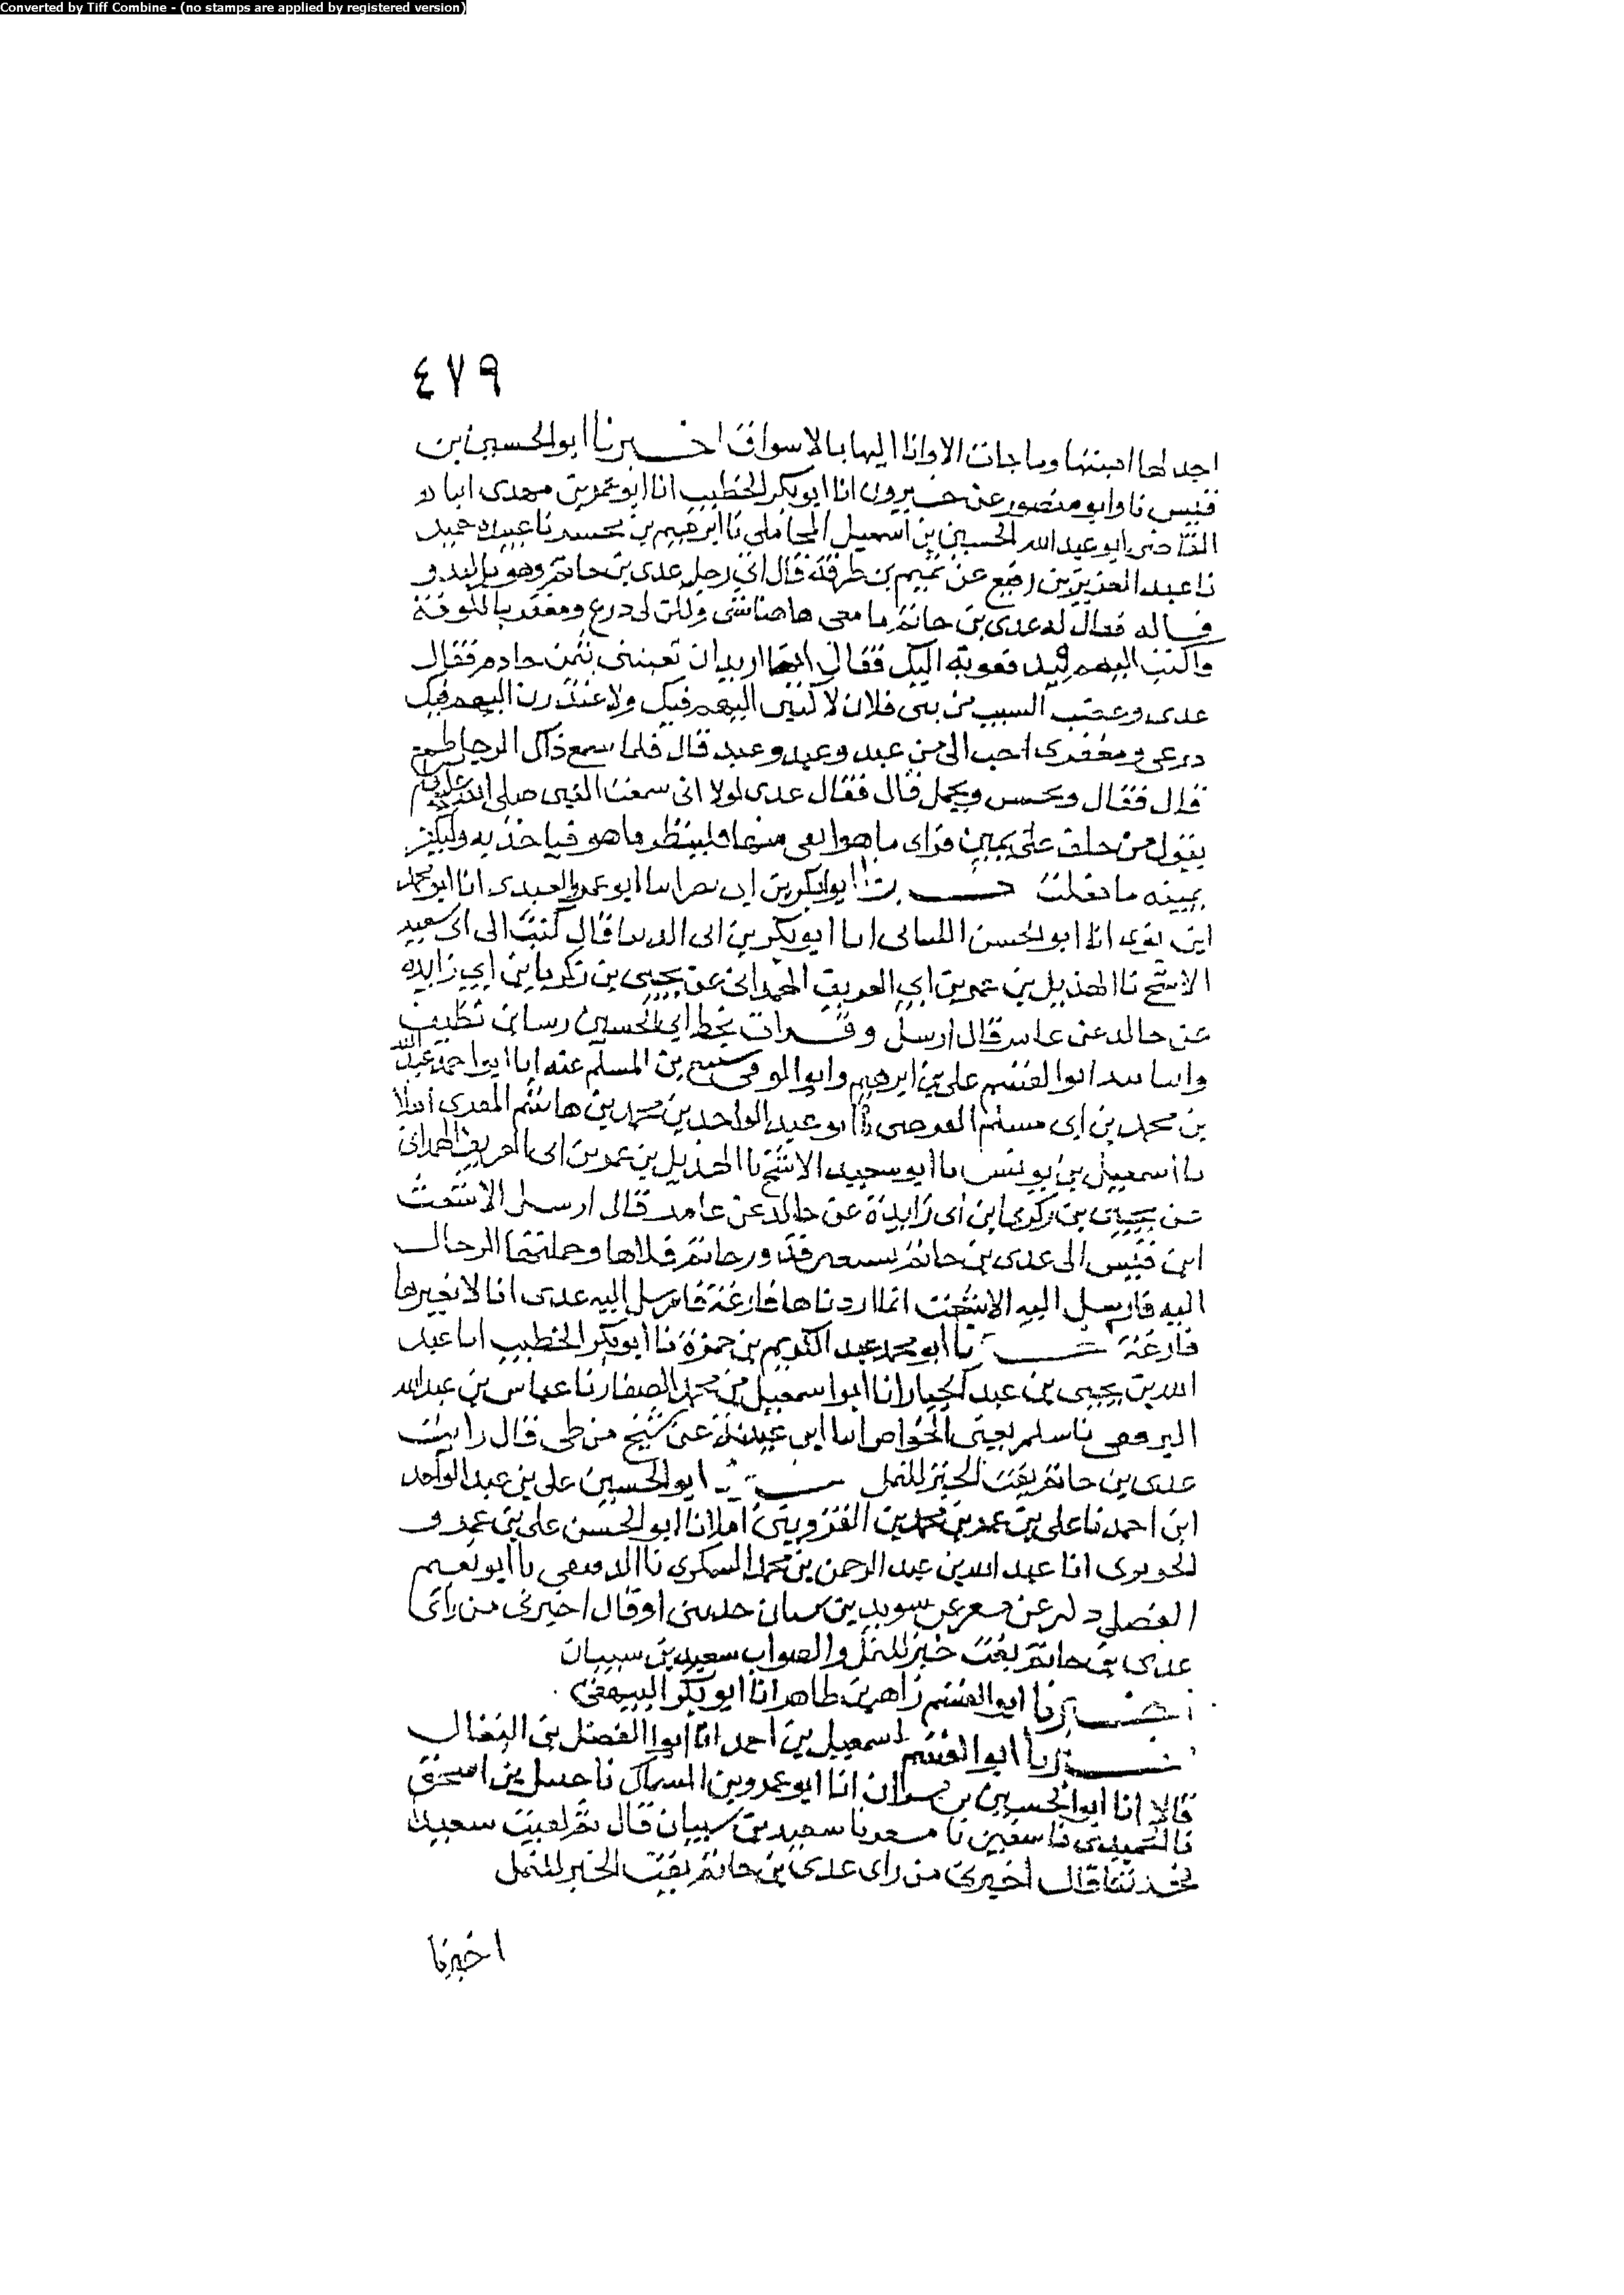 Converted by Tiff Combine - (no stamps are applied by registered version)
٤٧٩
اجد لها اهبتها وما جات الا وانا اليها بالاسواق اخبرنا ابو الحسين بن
قبيس نا وابو منصور عن خيرون انا ابو بكر الخطيب انا ابو عمر بن مهدى
القاضى ابو عبد الله الحسين بن اسمعيل المحاملى نا ابرهيم بن نا عبيده حميد
نا عبد العزيز بن رفيع عن تميم بن طرفة قال اتى رجل عدى بن حاتم وهو
فساله فقال له عدى بن حاتم ما معى هاهنا شى ولكن لى درع ومغفر بالكوفة
واكتب اليهم اليك فقال انما اريد ان تعيننى بثمن خادم فقال
عدى وغضب السبب من بنى فلان لا كتبن اليهم فيك ولا اليهم فيك
درعى ومغفرى احب الى من عبد وعبد وعبد قال فلما سمع ذاك الرجل طمع
قال فقال ويحسن ويجمل قال فقال عدى لولا انى سمعت النبى صلى الله عليه
يقول من حلف على يمين فراى ما هو اتقى منها فلينظر ما هو فياخذ به وليكفر
يمينه ما فعلت ابو بكر بن ابو عمرو العبدى انا ابو محمد
ابن يوه انا ابو الحسن اللبنانى انا ابو بكر بن ابى الدنيا قال كتب الى ابى سعيد
الاشج نا الهذيل بن عمر بن ابى العريف الهمدانى عن يحيى بن زكريا بن ابى زايده
عن خالد عن عامر قال ارسل وقرات بخط ابى الحسين رسا بن نظيف
وانبا ابو القسم على بن ابرهيم وابو سبيع بن المسلم عنه انا ابو احمد عبيد الله
بن محمد بن ابى مسلم الفرضى نا ابو عبد الواحد بن محمد بن هاشم المقرى املا
نا اسمعيل بن يونس نا ابو سعيد الاشج نا الهذيل بن عمر بن ابى العريف الهمدانى
عن يحيى بن زكريا ابن ابى زايدة عن خالد عن عامر قال ارسل الاشعث
ابن قيس الى عدى بن حاتم يستعير قدور حاتم فملاها وحملتها الرجال
اليه فارسل اليه الاشعث انما اردناها فارغة فارسل اليه عدى انا لا نعيرها
فارغة نا ابو محمد عبد الكريم بن حمزة نا ابو بكر الخطيب انا عبد
الله بن يحيى بن عبد الجبار انا ابو اسمعيل بن محمد الصفار نا عباس بن عبد الله
نا سلم يعنى الخواص انا ابن عيينة عن شيخ من طى قال رايت
عدى بن حاتم يفت الخبز للنمل ابو الحسين على بن عبد الواحد
ابن احمد نا على بن عمر بن محمد بن القزوينى املا نا ابو الحسن على بن عمرو
الحريرى انا عبد الله بن عبد الرحمن بن محمد السكرى نا نا ابو نعيم
الفضل دكين عن مسعر عن سويد بن سنان حدثنى او قال اخبرنى من راى
عدى بن حاتم يفت خبز للنمل والصواب سعيد بن سيبان
اخبرنا ابو القسم زاهر بن طاهر انا ابو بكر البيهقى
اخبرنا ابو القسم اسمعيل بن احمد انا ابو الفضل بن البقال
قالا انا ابو الحسين بن بشران انا ابو عمرو بن السماك نا حنبل بن اسحق
نا الحميدى نا سفين نا مسعر نا سعيد بن سيبان قال ثم لقيت سعيدا
فحدثنا قال اخبرنى من راى عدى بن حاتم يفت الخبز للنمل
اخبرنا